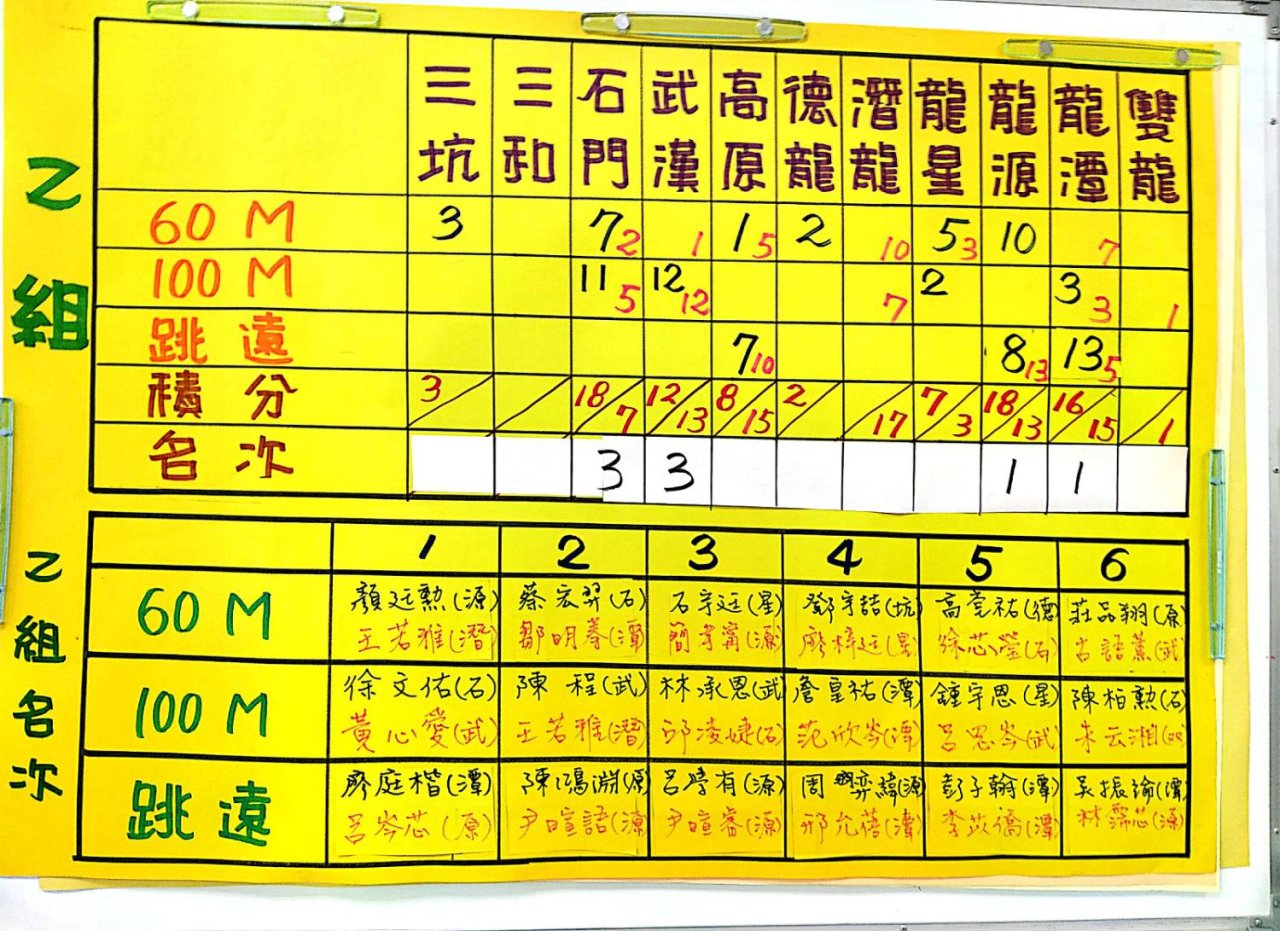 乙組
三坑 三和 石門 武漢 高原 德龍 潛龍 龍星 龍源 龍潭 雙龍
60 M 3 7 2 1 1 5 2 10 5 3 10 7
100 M 11 5 12 12 7 2 3 3 1
跳遠 7 10 8 13 13 5
積分 3/ / 18/7 12/13 8/15 2/ /17 7/3 18/13 16/15 /1
名次 3 3 1 1
乙組名次
1 2 3 4 5 6
60 M 顏廷勲(源) 蔡宏羿(石) 石宇廷(星) 鄧宇喆(坑) 高莞祐(德) 莊品翔(原)
王若雅(潛) 鄒明蓁(潭) 簡芳甯(源) 廖梓廷(星) 徐芯瑩(石) 古語蕙(武)
100 M 徐文佑(石) 陳程(武) 林承恩(武) 詹皇祐(潭) 鍾宇恩(星) 陳柏勲(石)
黃心愛(武) 王若雅(潛) 邱凌婕(石) 范欣岑(潭) 呂思岑(武) 朱云湘(双)
跳遠 廖庭楷(潭) 陳鴻淵(原) 呂學有(源) 周奕緯(源) 彭子翰(潭) 吳振諭(潭)
呂岑芯(原) 尹暄語(源) 尹暄睿(源) 邢允蓓(潭) 李苡僑(潭) 林霈芯(源)